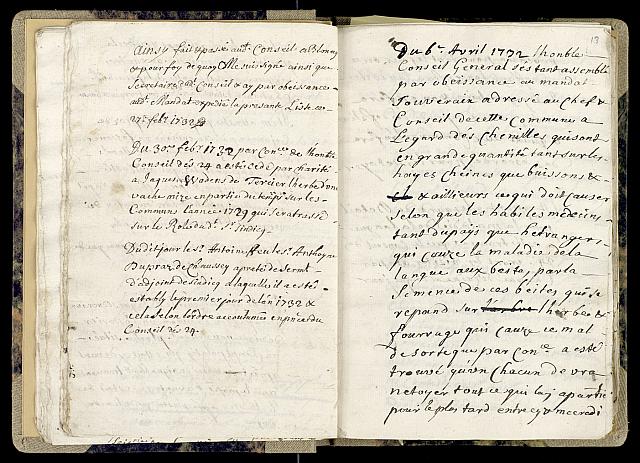 Ainsy fait et passé audt. Conseil a Blonay
& pour foy de quoy Me suis signé ainsi que
Secretaire dudt. Conseil & ay par obeissance
audt. Mandat expedié la presante Liste ce
27e. febr. 1732
Du 30e. febr. 1732 par Con.ce du honble
Conseil des 24 a esté cedé par charité
a Jaques de Tercier lherbe d'une
vache mize en partie du temps sur les
Communs l'année 1729 qui sera tracée
sur le Rolle dudt. Sr. Sindicq
Dudit jour le Sr. Antoine feu le Sr. Anthoyne
Dupraz de Chaussey a preté de sermt.
d'adjoint de sindicq a laquelle il a esté
estably le premier pour de l'an 1732 &
cela selon l'ordre accoutumée en plie du
Conseil des 24.
13
Du 6e. Avril 1732 lhonble
Conseil General s'éstant assemblé
par obeissance au mandat
Souverain adressé au Chef &
Conseil de cette Commune a
l'egard dés Chenilles qui sont
en grande quantité tant sur les
hayes cheines que buissons &
& aillieurs ce qui doit causer
selon que les habiles médecins,
tant du pays que hetrangers,
qui cauze la maladie de la
langue aux bestes, par la
semence de ces beites, que se
repand sur lherbes &
fourrage qui cauze ce mal
de sorte que par Con.ce a esté
trouvé qu'un Chacun devra
netoyer tout ce qui luy apartie
pour le plus tard entre cy & mecredi